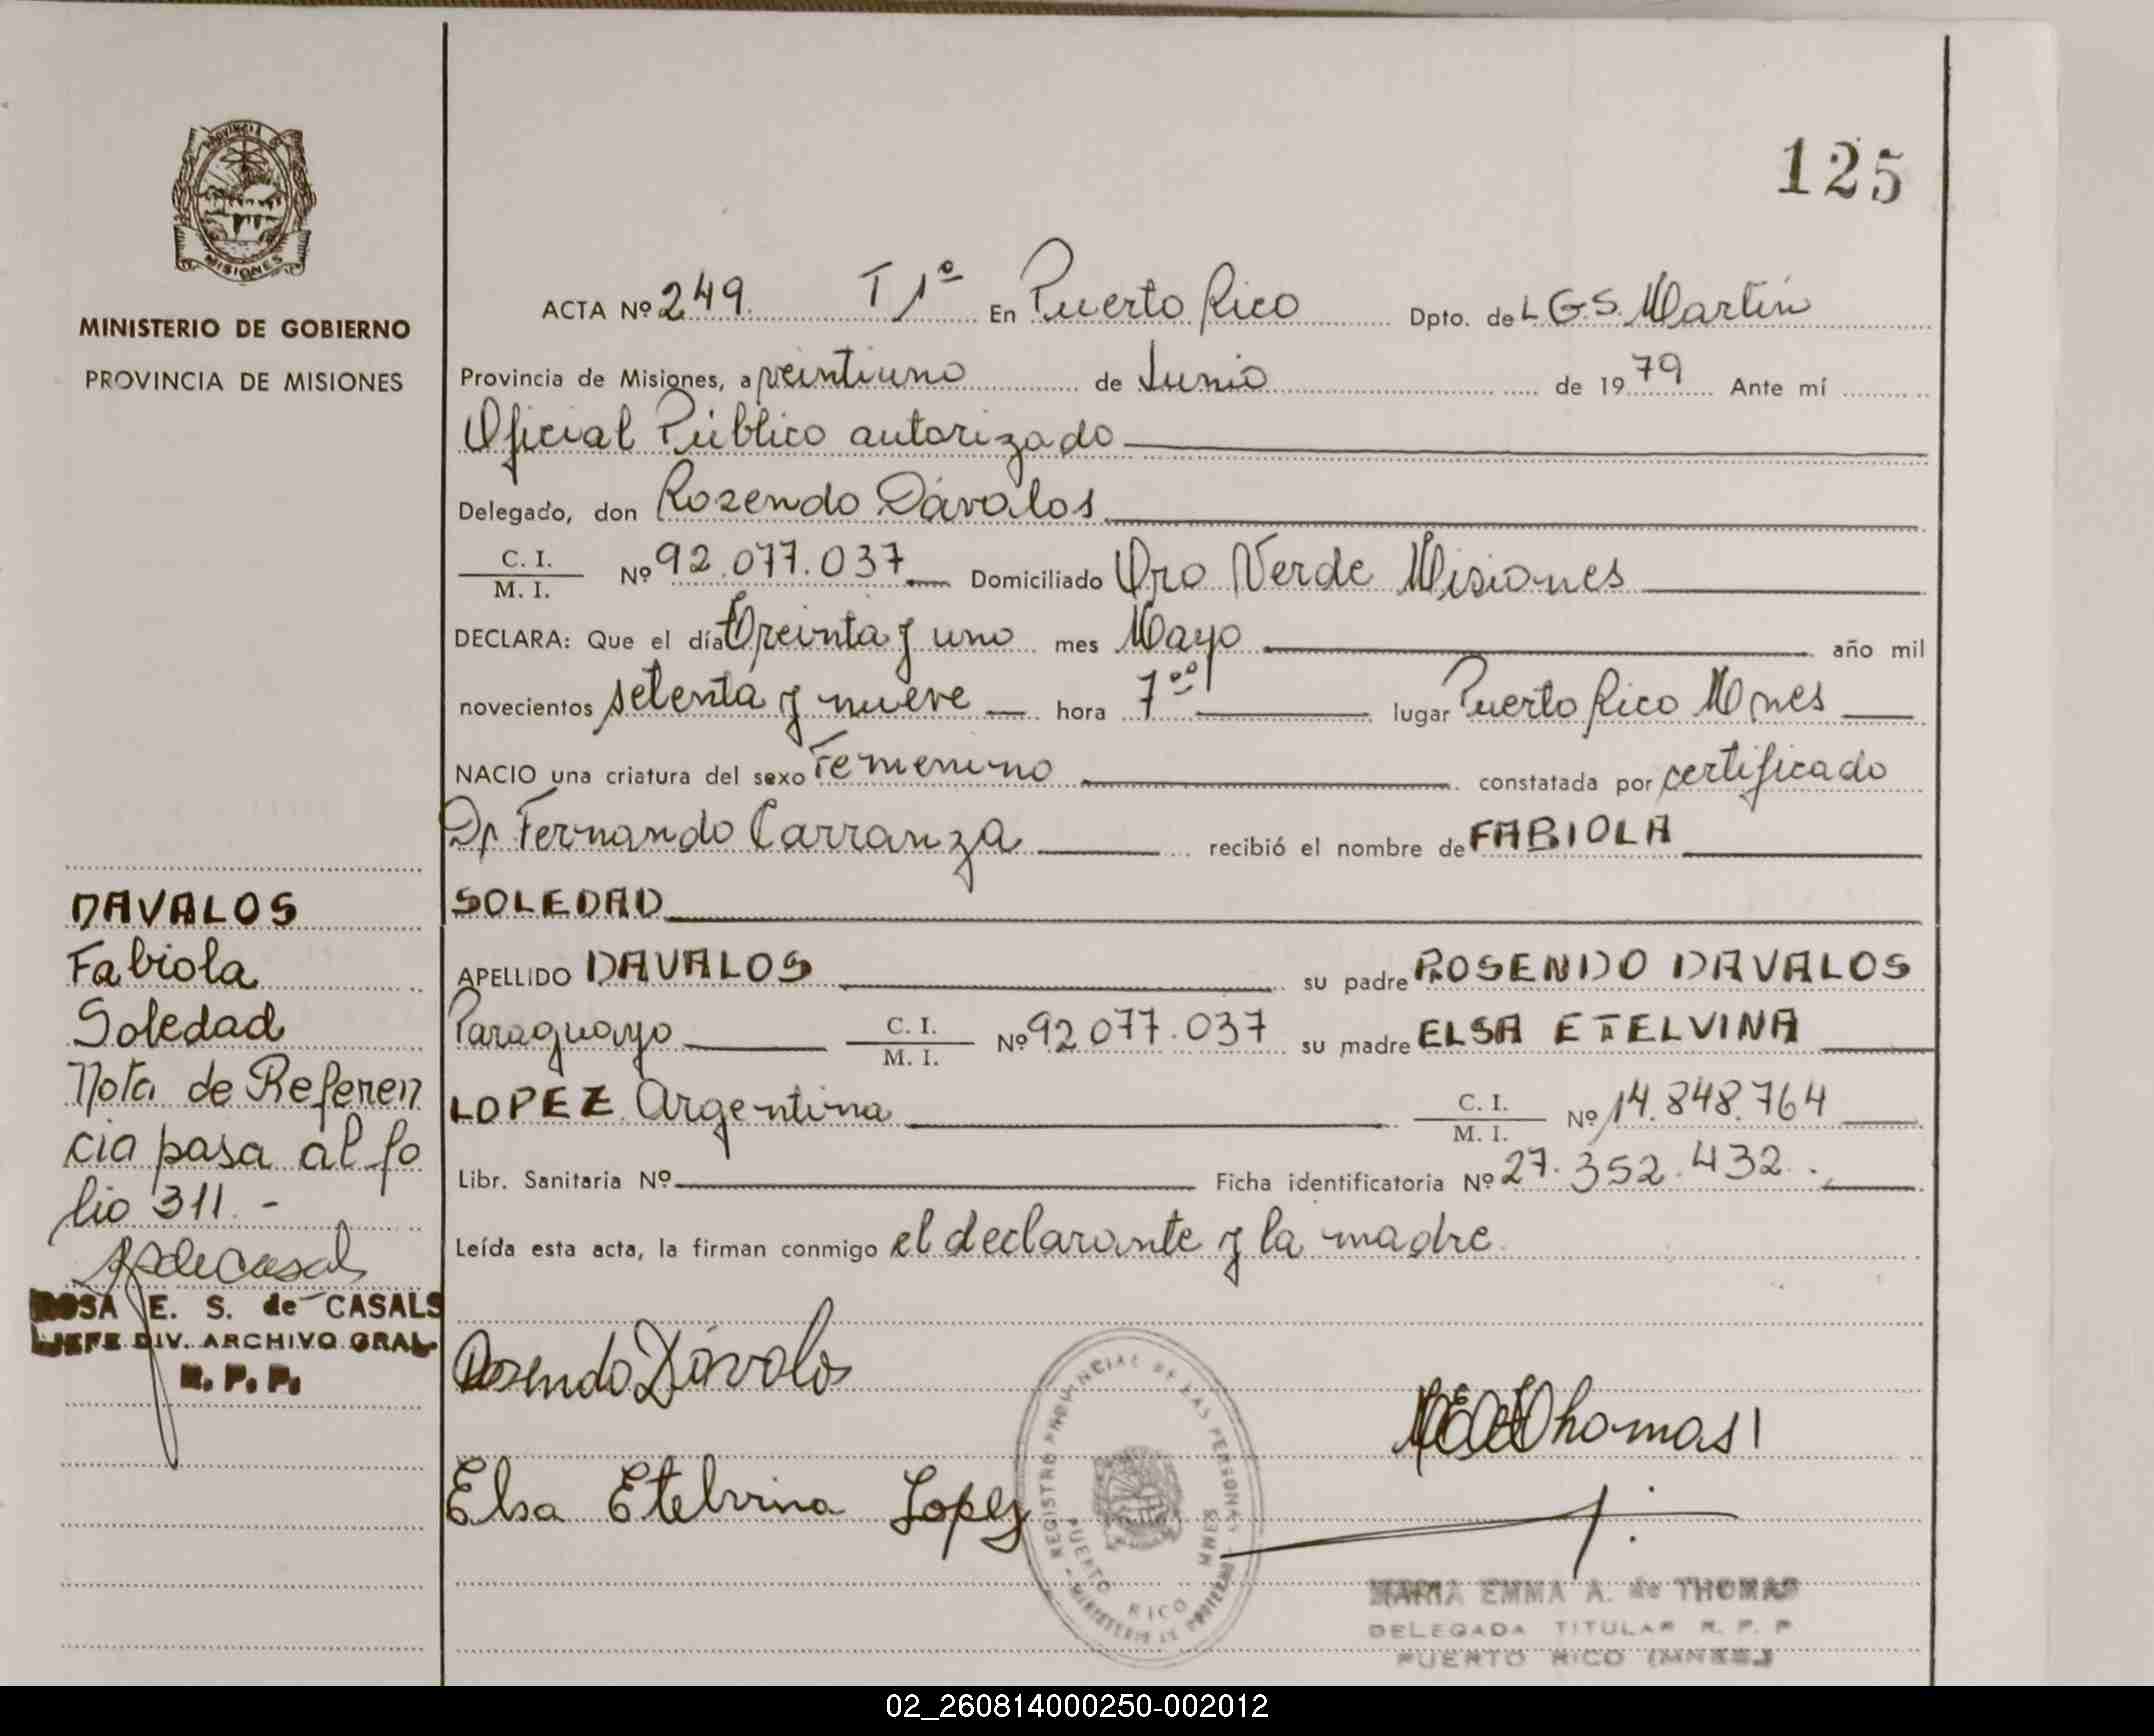 125
PROVINCIA DE MISIONES
MINISTERIO DE GOBIERNO
PROVINCIA DE MISIONES
ACTA Nº 249. T 1º En Puerto Rico Dpto. de L G.S. Martín
Provincia de Misiones, a veintiuno de Junio de 1979 Ante mí
Oficial Público autorizado
Delegado, don Rozendo Dávalos
C. I. / M. I. Nº 92.077.037 Domiciliado Oro Verde Misiones
DECLARA: Que el día treinta y uno mes Mayo año mil
novecientos setenta y nueve hora 7ºº lugar Puerto Rico Mnes
NACIO una criatura del sexo Femenino constatada por certificado
Dr Fernando Carranza recibió el nombre de FABIOLA
SOLEDAD
APELLIDO DAVALOS su padre ROSENDO DAVALOS
Paraguayo C. I. / M. I. Nº 92 077.037 su madre ELSA ETELVINA
LOPEZ Argentina C. I. / M. I. Nº 14.848.764
Libr. Sanitaria Nº Ficha identificatoria Nº 27.352.432.
Leída esta acta, la firman conmigo el declarante y la madre
DAVALOS
Fabiola
Soledad
Nota de Referen
cia pasa al fo
lio 311.-
ROSA E. S. de CASALS
JEFE DIV. ARCHIVO GRAL.
R. P. P.
Rosendo Dávalos
Elsa Etelvina Lopez
REGISTRO PROVINCIAL DE LAS PERSONAS
PUERTO RICO MNES
Thomas
MARIA EMMA A. de THOMAS
DELEGADA TITULAR R. P. P
PUERTO RICO (MNES.)
02_260814000250-002012